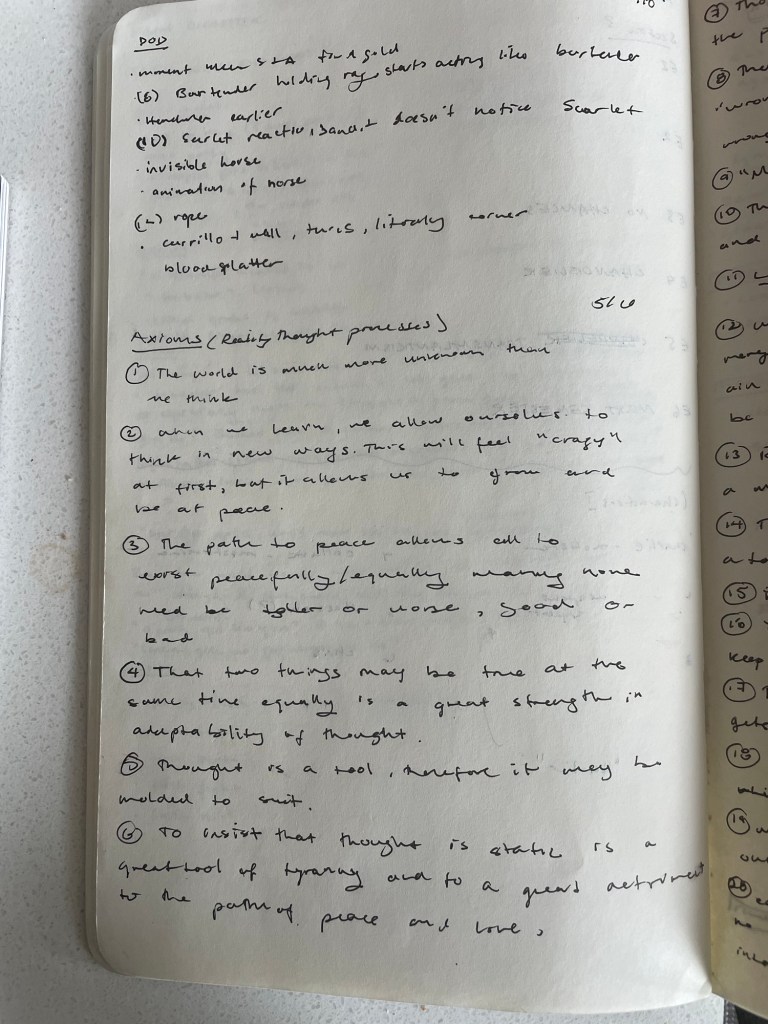 DOD
· moment when S + A find gold
(B) Bartender holding rag, starts acting like bartender
· Henchmen earlier
(D) Scarlet reaction, bandit doesn't notice Scarlet
· invisible horse
· animation of horse
(L) rope
· currillo + wall, turns, literaly corner
bloodsplatter
5/6
Axioms (Reality Thought processes)
① The world is much more unknown than
we think
② when we learn, we allow ourselves to
think in new ways. This will feel "crazy"
at first, but it allows us to grow and
be at peace.
③ The path to peace allows all to
exist peacefully/equally making none
need be better or worse, good or
bad
④ That two things may be true at the
same time equally is a great strength in
adaptability of thought.
⑤ Thought is a tool, therefore it may be
molded to suit.
⑥ To insist that thought is static is a
great tool of tyranny and to a great detriment
to the path of peace and love.
⑦ Tho
the p
⑧ The
"wron
⑨ "M
⑩ Th
and
⑪ L
⑫ W
ain
be
⑬
a m
⑭ T
a to
⑮ i
⑯
keep
⑰ T
gets
⑱
whi
⑲ w
our
⑳ ea
no